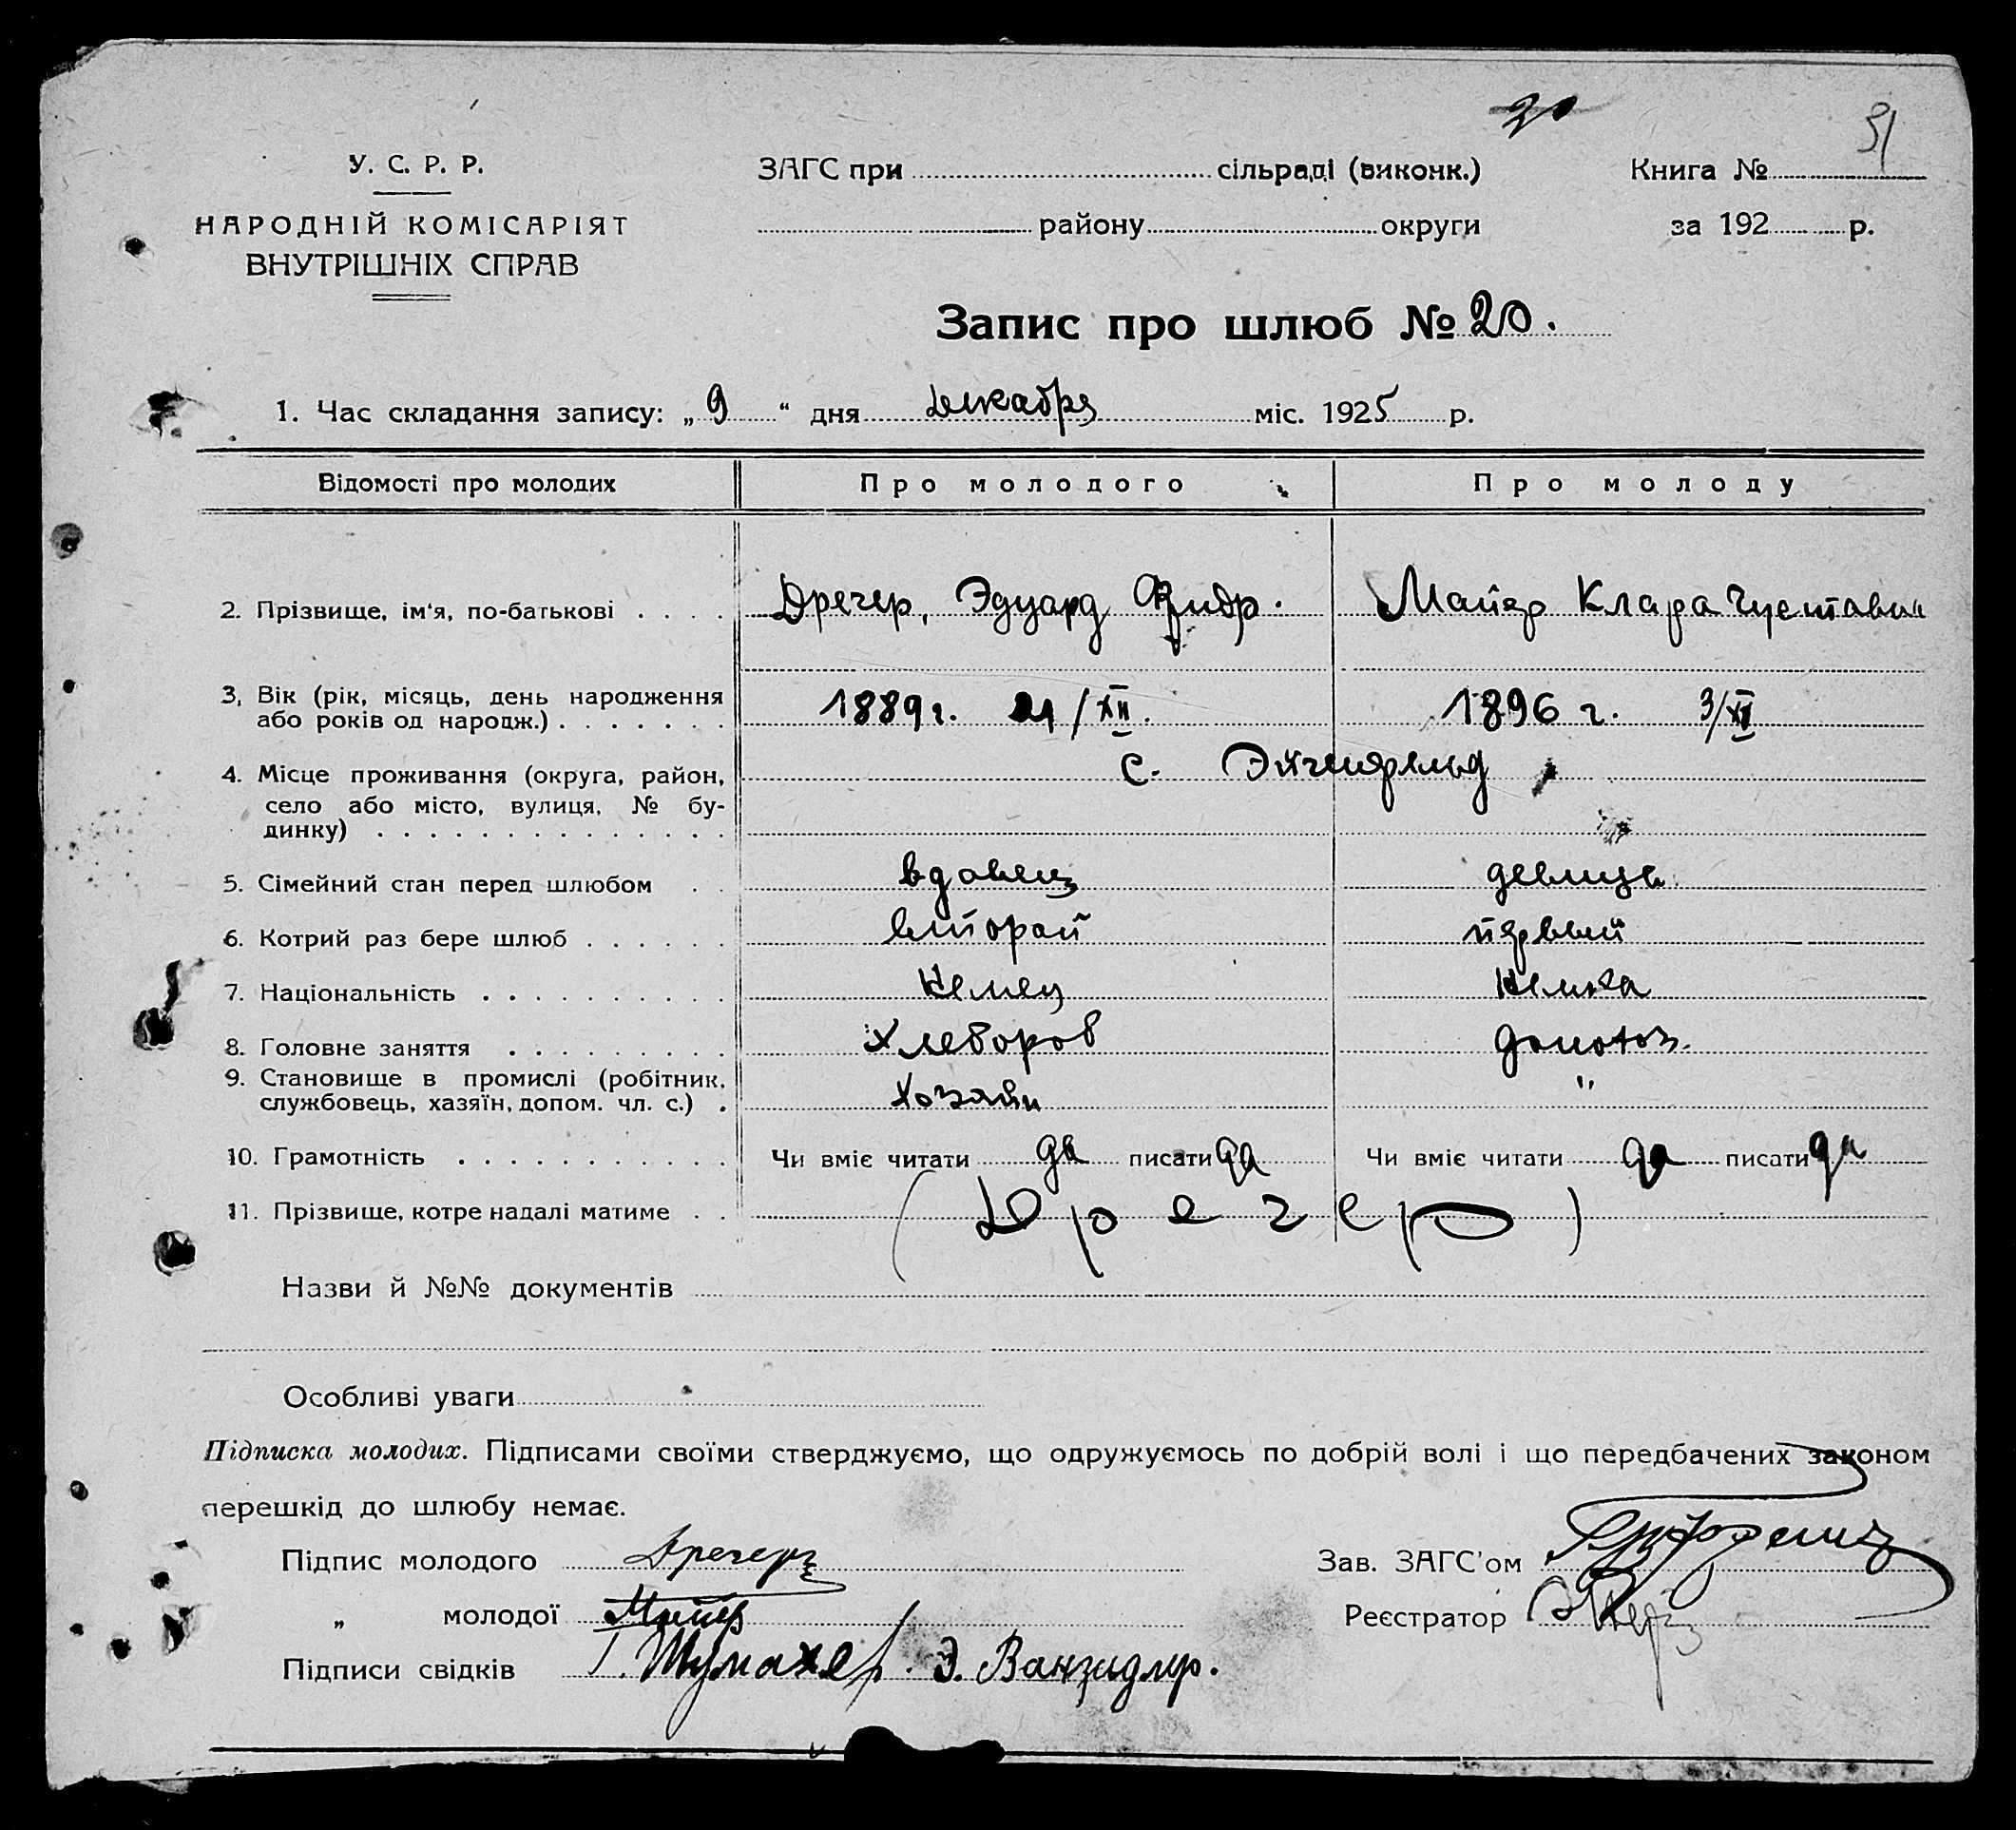 20
51
У. С. Р. Р.
НАРОДНІЙ КОМІСАРІЯТ
ВНУТРІШНІХ СПРАВ
ЗАГС при сільраді (виконк.)
району округи
Книга №
за 192 р.
Запис про шлюб № 20.
1. Час складання запису: „ 9 “ дня Декабря міс. 1925 р.
Відомості про молодих Про молодого Про молоду
2. Прізвище, ім'я, по-батькові . . . . Дречер, Эдуард Фридр. Майер Клара Густавн
3, Вік (рік, місяць, день народження
або років од народж.) . . . . . . . 1889 г. 21/XII. 1896 г. 3/XI
4. Місце проживання (округа, район,
село або місто, вулиця, № бу-
динку) . . . . . . . . . . . . . . с. Эйгенфельд
5. Сімейний стан перед шлюбом . . вдовец девица
6. Котрий раз бере шлюб . . . . . . второй первый
7. Національність . . . . . . . . . . Немец Немка
8. Головне заняття . . . . . . . . . Хлебороб домохоз.
9. Становище в промислі (робітник,
службовець, хазяїн, допом. чл. с.) . Хозяйн "
10. Грамотність . . . . . . . . . . . Чи вміє читати да писати да Чи вміє читати да писати да
11. Прізвище, котре надалі матиме . . (Дречер)
Назви й №№ документів
Особливі уваги
Підписка молодих. Підписами своїми стверджуємо, що одружуємось по добрій волі і що передбачених законом
перешкід до шлюбу немає.
Підпис молодого Дречеръ
„ молодої Майер
Підписи свідків Г. Шумахер. Э. Ванзидлер.
Зав. ЗАГС'ом
Реєстратор